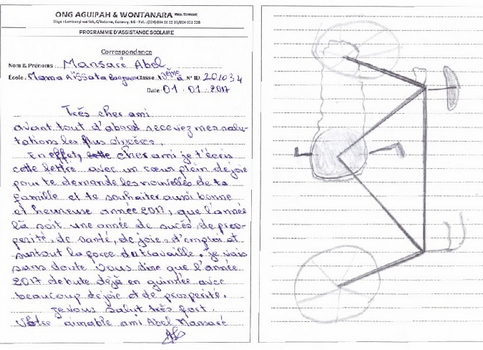 ONG AGUIPAH & WONTANARA
PROGRAMME D'ASSISTANCE SCOLAIRE
Correspondance
Nom & Prénoms: Mansaré Abel
École: Mama Aïssata Classe: N° ID: 201034
Date: 01 01 2017
Très cher ami
avant tout d'abord recevez mes salu-
tations les plus sincères.
En effet, cher ami je t'écris
cette lettre avec un cœur plein de joie
pour te demande les nouvelles de ta
famille et te souhaiter aussi bonne
et heureuse année 2017, que l'année
là soit une année de succès de pros-
périté, de santé, de joie, d'emploi et
surtout la force du travaille. je vais
sans doute vous dire que l'année
2017 débute déjà en guinée avec
beaucoup de joie et de prospérité.
je vous salut très fort.
Votre aimable ami Abel Mansaré